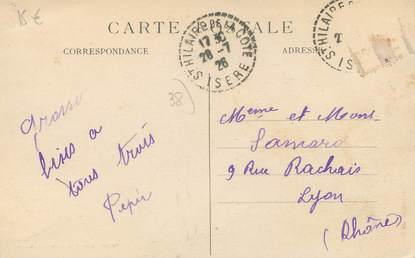 15 €
CARTE POSTALE
CORRESPONDANCE
ADRESSE
ST HILAIRE DE LA COTE
17 30
20 - 7
26
ISERE
ST HILAIRE
2
ISERE
38)
grosses
bises a
tous trois
Pépée
Mme et Mons.
9 Rue Rachais
Lyon
(Rhône)